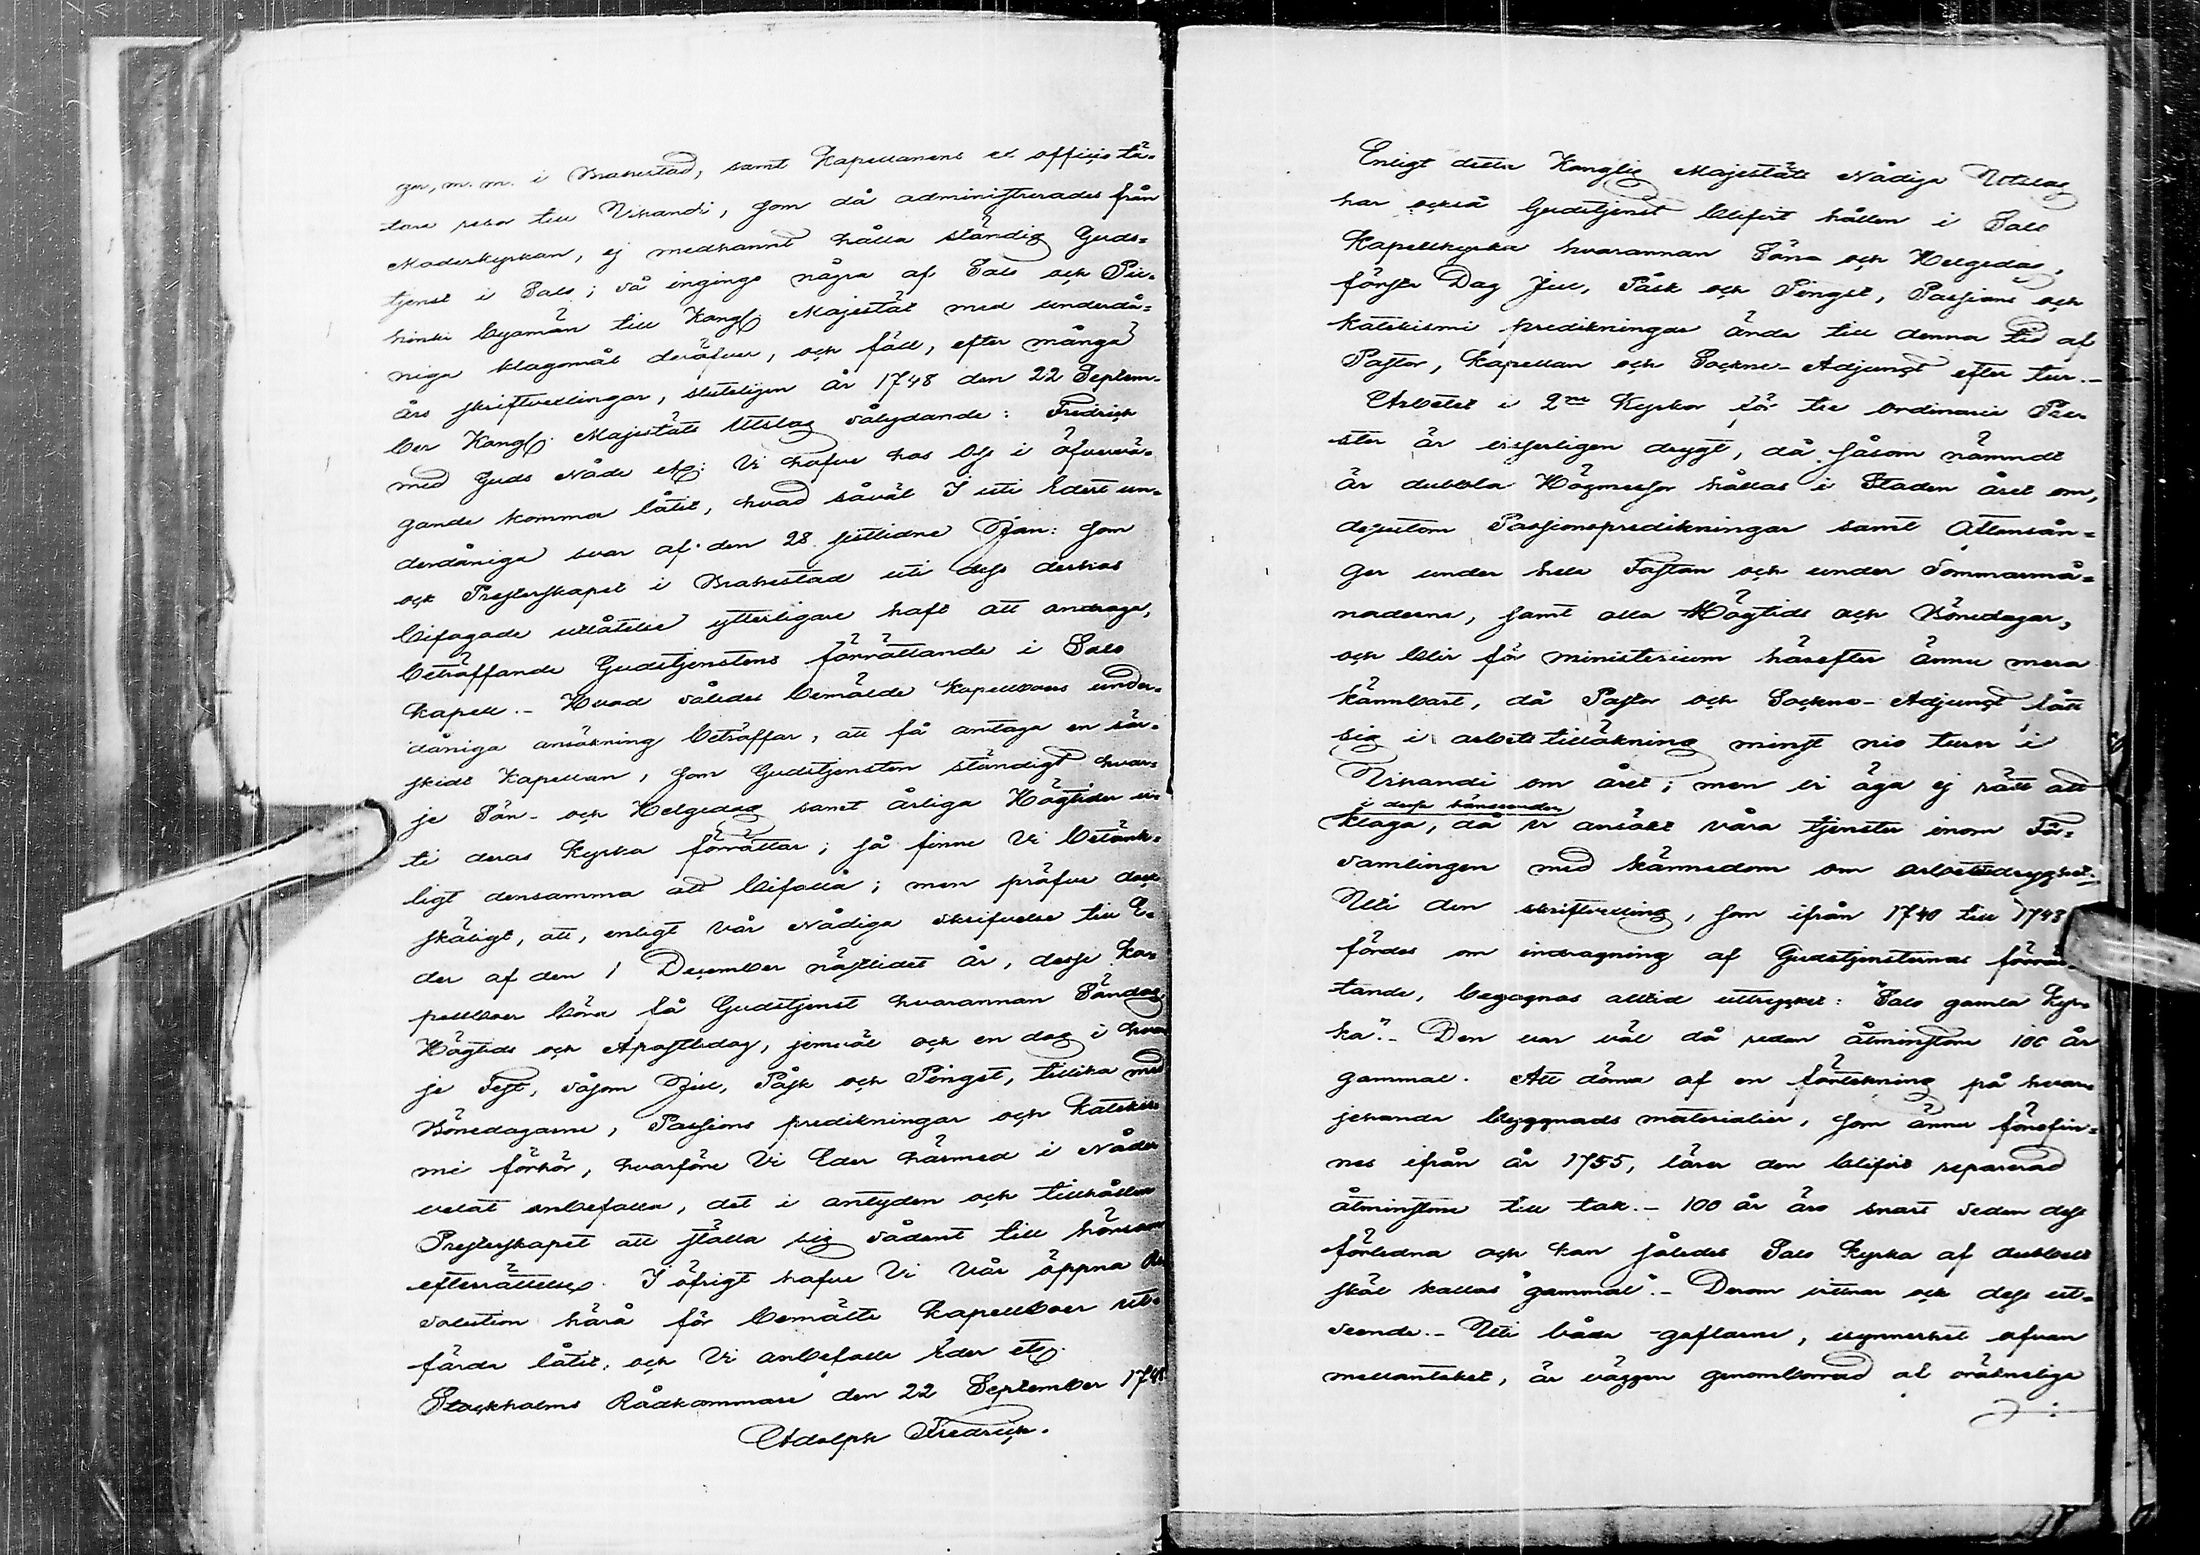 gor, m.m. i Brahestad, samt Kapellanens ex officio tä-
tare resor till Vihandi, som då administrerades från
Moderkyrkan, ej medhannt hålla ständig Guds-
tjenst i Salo; så ingingo några af Salo och Pie-
hinki byamän till Kongl. Majestät med underdå-
niga klagomål deröfver, och föll, efter många
års skriftvexlingar, sluteligen år 1748 den 22 Septem-
ber Kongl. Majestäts Utslag sålydande: Fredrich
med Guds Nåde etc: Vi hafve hos Oss i öfvervä-
gande komma låtit, hvad såväl I uti Edert un-
derdåniga svar af den 28 sistlidne Jan: som
ock Presterskapet i Brahestad uti dess derhos
bifogade utlåtelse ytterligare haft att andraga,
beträffande Gudstjenstens förrättande i Salo
kapell.- Hvad således bemälde Kapellboers under-
dåniga ansökning beträffar, att få antaga en sär-
skidt Kapellan, som Gudstjensten ständigt hvar-
je Sön- och Helgedag samt årliga Högtider u-
ti deras Kyrka förrättar; så finne Vi betänk-
ligt densamma att bifalla; men pröfve dock
skäligt, att, enligt vår Nådiga skrifvelse till E-
der af den 1 December näslidet år, desse Ka-
pellboer böra få Gudstjenst hvarannan Söndag,
Högtids och Apostledag, jemväl och en dag i hvar
je Fest, såsom Jul, Påsk och Pingst, tillika med
Bönedagarne, Passions predikningar och Katekis-
mi förhör, hvarföre Vi Eder härmed i Nåder
velat anbefalla, det i antyden och tillhållen
Presterskapet att ställa sig sådant till hörsam
efterrättelse. I öfrigt hafve Vi Vår öppna Re
solution härå för bemälte Kapellboer ut-
färda låtit, och Vi anbefalle Eder etc.
Stockholms Rådkammare den 22 September 1748
Adolph Fredrich.
Enligt detta Konglig Majestäts Nådiga Utslag
har också Gudstjenst blifvit hållen i Salo
Kapellkyrka hvarannan Söna och Helgedag,
förste Dag Jul, Påsk och Pingst, Passions och
Katekismi predikningar ända till denna tid af
Pastor, Kapellan och Sockne-Adjunct efter tur.-
Arbetet i 2ne Kyrkor för tre ordinarie Pre-
ster är visserligen drygt, då såsom nämndt
är dubbla Högmessor hållas i Staden året om,
dessutom Passionspredikningar samt Ottesån-
ger under hela Fastan och under Sommarmå-
naderna, samt alla Högtids och Bönedagar,
och blir för ministerium härefter ännu mera
kännbart, då Pastor och Sockne-Adjunct fått
sig i arbets tillökning minst nio turer i
Vihandi om året; men vi äga ej rätt att
i desse hänseenden
klaga, då vi ansökt våra tjenster inom För-
samlingen med kännedom om arbetsdryghet.-
Uti den skriftvexling, som ifrån 1740 till 1748
fördes om indragning af Gudstjensternas förrät-
tande, begagnas alltid uttrycket: "Salo gamla Kyr-
ka".- Den var väl då redan åtminstone 100 år
gammal. Att döma af en förtekning på hvar-
jehanda byggnads materialier, som ännu förefin-
nes ifrån år 1755, lärer den blifvit reparerad
åtminstone till tak.- 100 år äro snart sedan dess
förledna och kan således Salo Kyrka af dubbelt
skäl kallas "gammal".- Derom vittnar ock dess ut-
seende.- Uti båda gaflarne, isynnerhet ofvan
mellantaket, är väggen genomborrad af oräkneliga